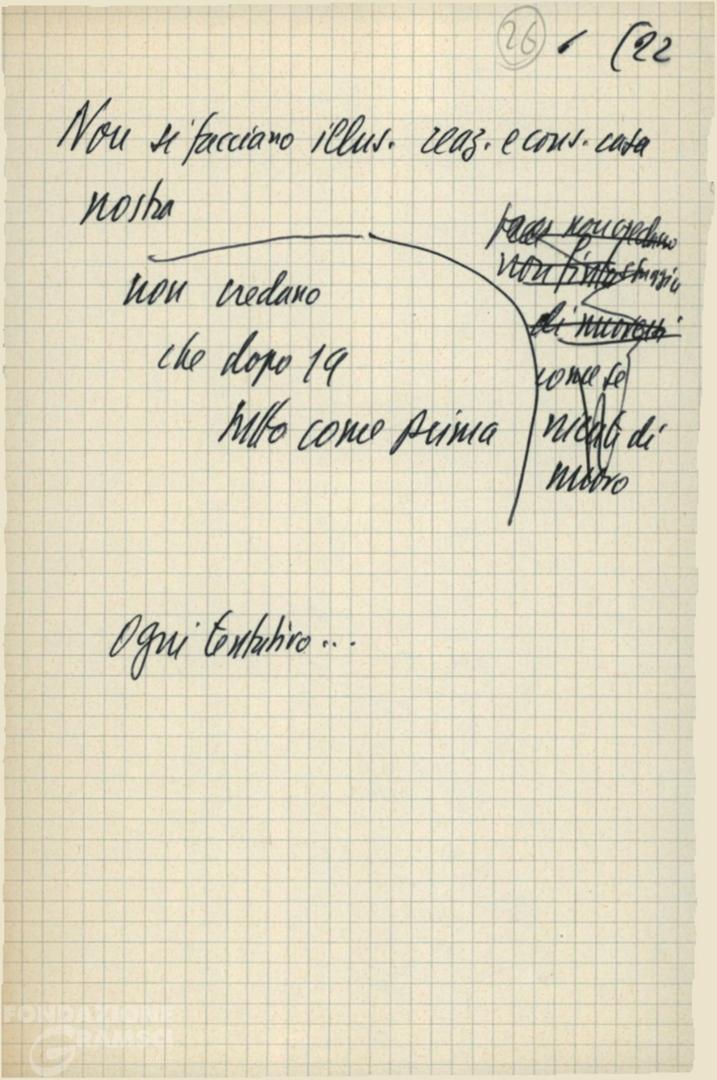 26 (22
Non si facciano illus. reaz. e cons. casa
nostra
non credano
che dopo 19
tutto come prima
non credano
non
di
come se
di
nuovo
Ogni tentativo...
FONDAZIONE
GRAMSCI